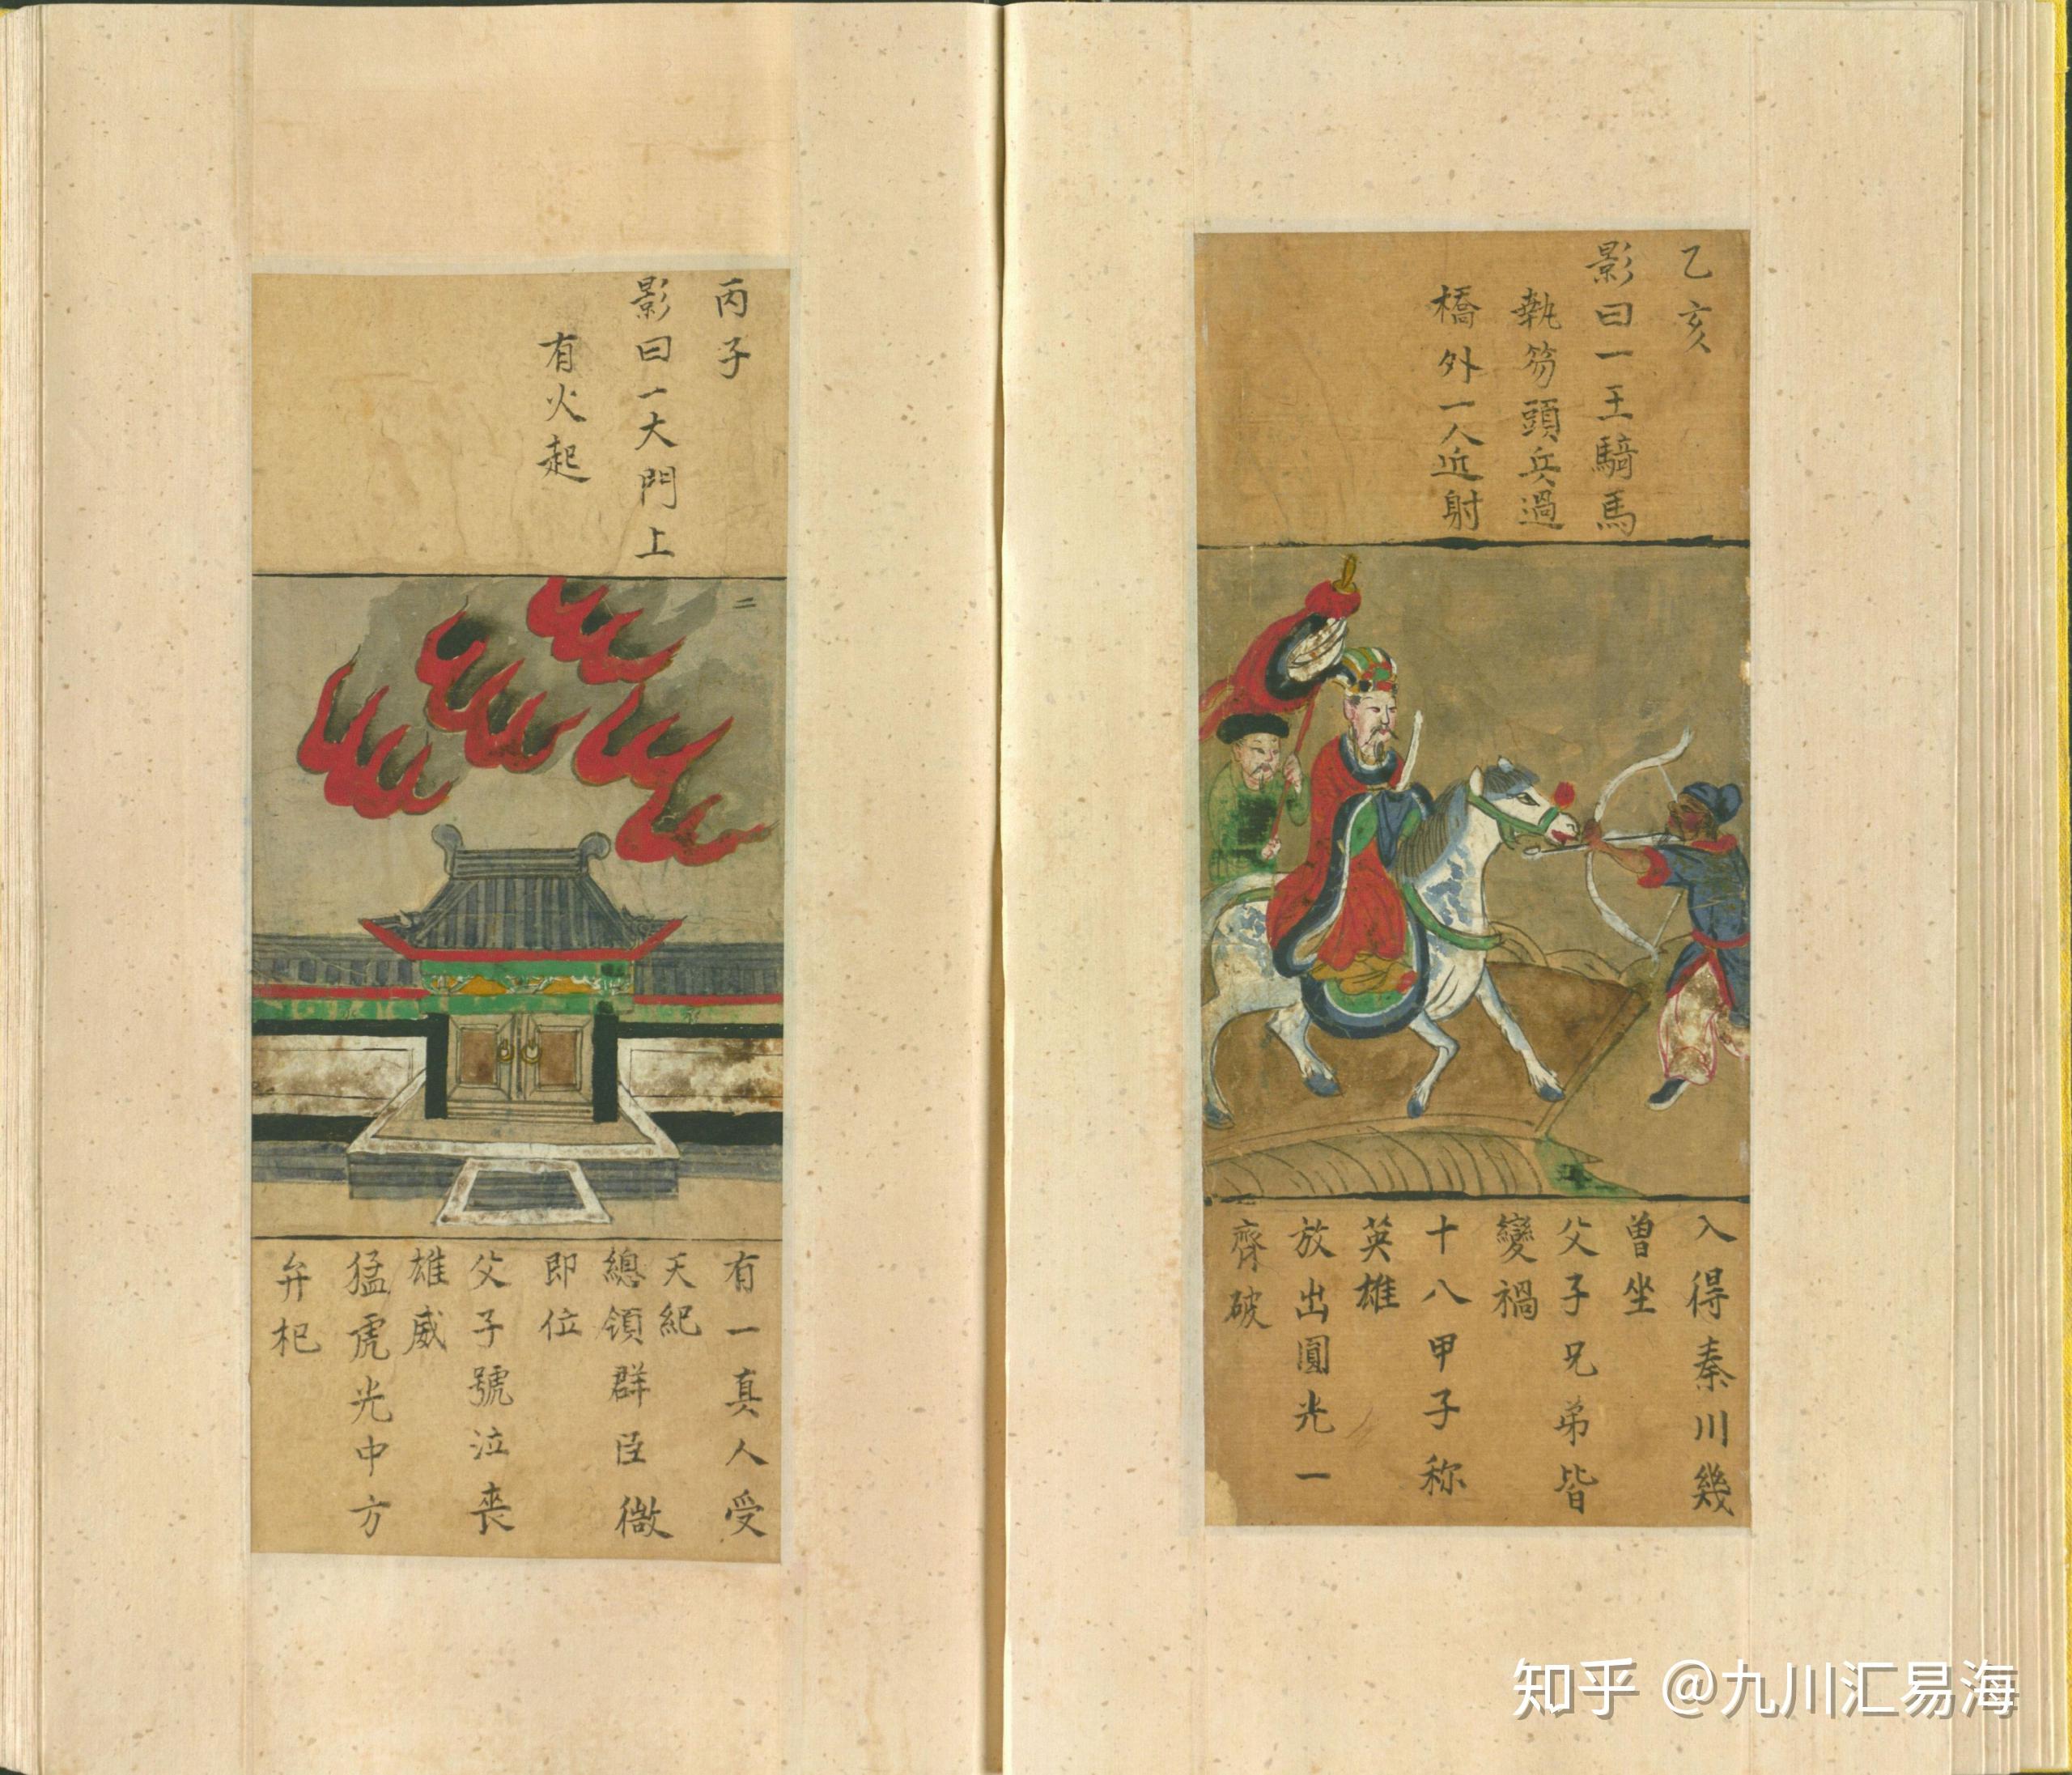 乙亥
影曰一王騎馬
執笏頭兵過
橋外一人近射
入得秦川幾
曾坐
父子兄弟皆
變禍
十八甲子称
英雄
放出圓光一
齊破
丙子
影曰一大門上
有火起
二
有一真人受
天紀
總領群臣徵
即位
父子號泣喪
雄威
猛虎光中方
弁杞
知乎 @九川汇易海